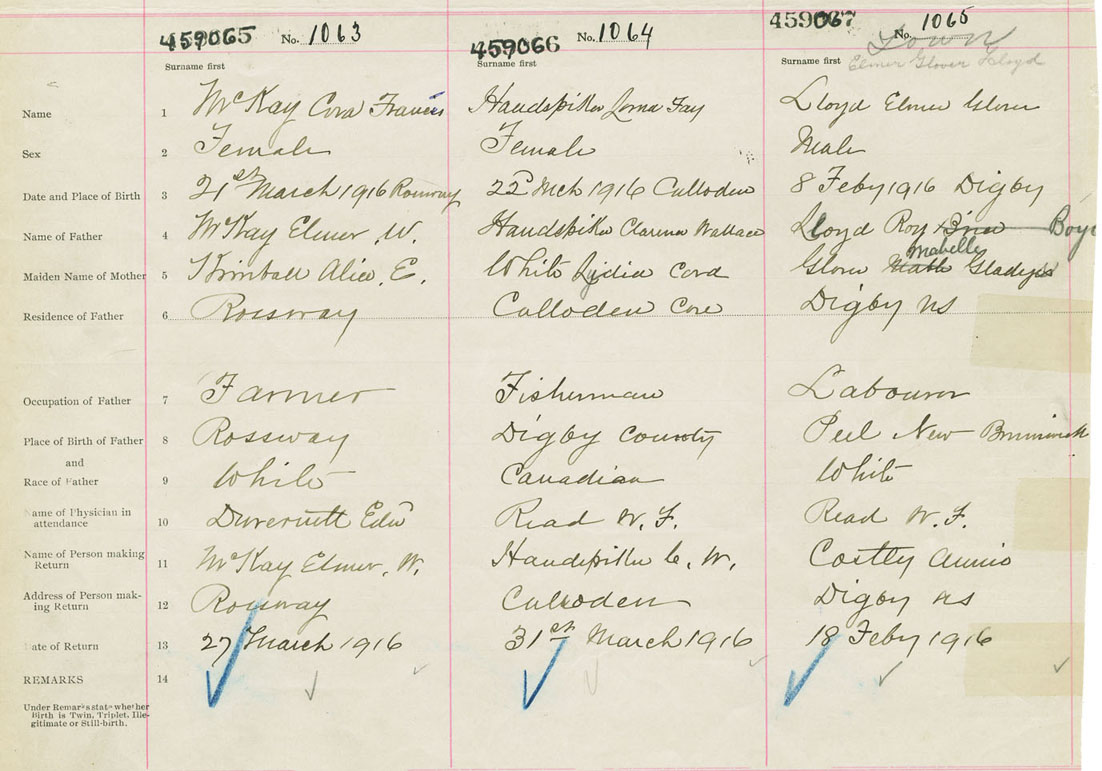 459065 No. 1063 459066 No. 1064 459067 No. 1065
Town
Surname first Surname first Surname first Elmer Glover Lloyd
Name 1 McKay Cora Francis Handspiker Lorna Fay Lloyd Elmer Glover
Sex 2 Female Female Male
Date and Place of Birth 3 21st March 1916 Rossway 22d Mch 1916 Culloden 8 Feby 1916 Digby
Name of Father 4 McKay Elmer, W. Handspiker Clarence Wallace Lloyd Roy
Mabelle
Maiden Name of Mother 5 Kimball Alice, E. White Lydia Cora Glover Gladys
Residence of Father 6 Rossway Culloden Cove Digby NS
Occupation of Father 7 Farmer Fisherman Labourer
Place of Birth of Father 8 Rossway Digby County Peel New Brunswick
and
Race of Father 9 White Canadian White
Name of Physician in
attendance 10 Duvernett Edw Read W. F. Read W. F.
Name of Person making
Return 11 McKay Elmer, W. Handspiker C. W. Costly Annie
Address of Person mak-
ing Return 12 Rossway Culloden Digby NS
ate of Return 13 27 March 1916 31st March 1916 18 Feby 1916
REMARKS 14
Under Remarks state whether
Birth is Twin, Triplet, Ille-
gitimate or Still-birth.